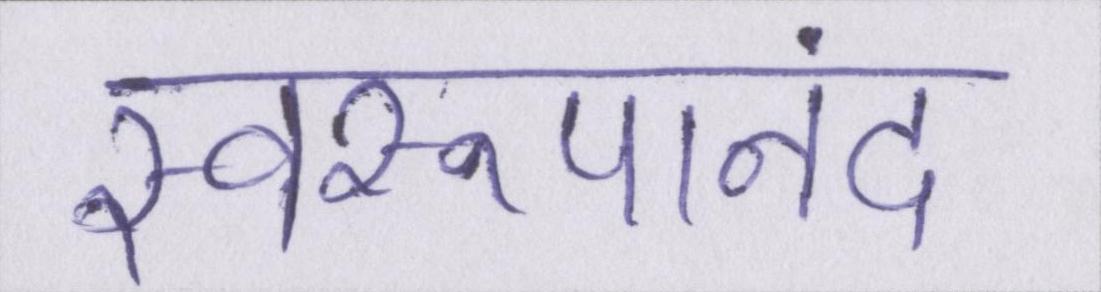 स्वरूपानंद